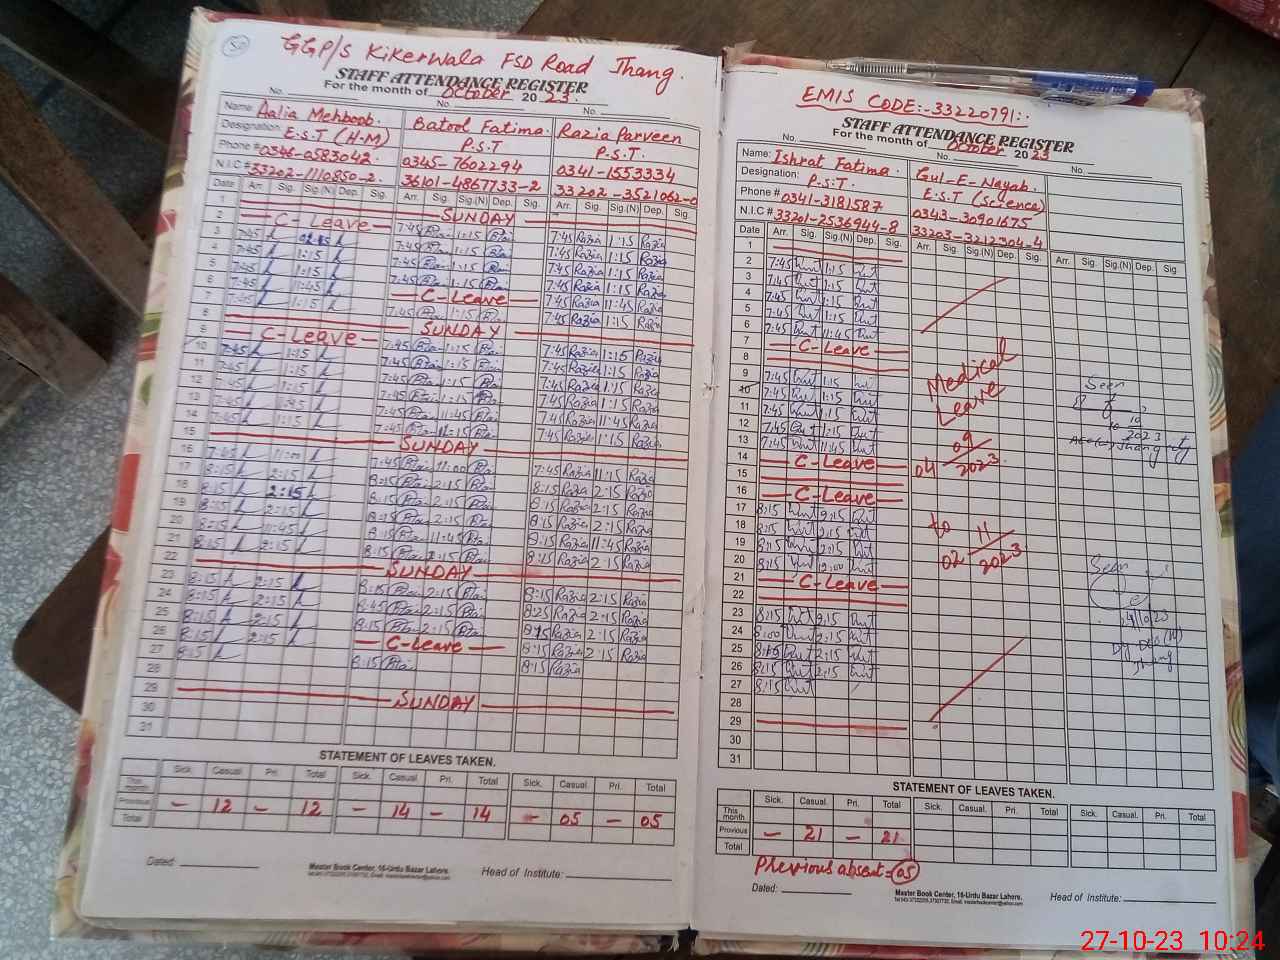 50
GGP/S Kikerwala FSD Road Jhang.
STAFF ATTENDANCE REGISTER
For the month of October 2023.
No. No. No.
Name: Aalia Mehboob. Batool Fatima. Razia Parveen
Designation: E.S.T (H.M) P.S.T P.S.T.
Phone # 0346-0583042. 0345-7602294 0341-1553334
N.I.C # 33202-1110850-2. 36101-4867733-2 33202-3521062-0
Date Arr. Sig. Sig.(N) Dep. Sig. Arr. Sig. Sig.(N) Dep. Sig. Arr. Sig. Sig.(N) Dep. Sig.
1 SUNDAY
2 C-Leave 7:45 1:15 7:45 Razia 1:15 Razia
3 7:45 7:45 1:15 7:45 Razia 1:15 Razia
4 7:45 1:15 7:45 1:15 7:45 Razia 1:15 Razia
5 7:45 1:15 7:45 1:15 7:45 Razia 1:15 Razia
6 7:45 11:45 C-Leave 7:45 Razia 11:45 Razia
7 7:45 1:15 7:45 1:15 7:45 Razia 1:15 Razia
8 SUNDAY
9 C-Leave 7:45 1:15 7:45 Razia 1:15 Razia
10 7:45 1:15 7:45 1:15 7:45 Razia 1:15 Razia
11 7:45 1:15 7:45 1:15 7:45 Razia 1:15 Razia
12 7:45 1:15 7:45 1:15 7:45 Razia 1:15 Razia
13 7:45 7:45 11:45 7:45 Razia 11:45 Razia
14 7:45 1:15 7:45 7:45 Razia 1:15 Razia
15 SUNDAY
16 7:45 11:00 7:45 11:00 7:45 Razia 11:15 Razia
17 8:15 2:15 8:15 2:15 8:15 Razia 2:15 Razia
18 8:15 2:15 8:15 2:15 8:15 Razia 2:15 Razia
19 8:15 2:15 8:15 2:15 8:15 Razia 2:15 Razia
20 8:15 8:15 11:45 8:15 Razia 11:45 Razia
21 8:15 2:15 8:15 2:15 8:15 Razia 2:15 Razia
22 SUNDAY
23 8:15 2:15 8:15 2:15 8:15 Razia 2:15 Razia
24 8:15 2:15 8:45 2:15 8:25 Razia 2:15 Razia
25 8:15 2:15 8:15 2:15 8:15 Razia 2:15 Razia
26 8:15 2:15 C-Leave 8:15 Razia 2:15 Razia
27 8:15 8:15 8:15 Razia
28
29 SUNDAY
30
31
STATEMENT OF LEAVES TAKEN.
Sick. Casual Pri. Total Sick. Casual Pri. Total Sick. Casual. Pri. Total
This month
Previous - 12 - 12 - 14 - 14 - 05 - 05
Total
Dated: Master Book Center, 16-Urdu Bazar Lahore. Head of Institute:
EMIS CODE:-33220791:.
STAFF ATTENDANCE REGISTER
For the month of October 2023
No. No. No.
Name: Ishrat Fatima. Gul-E-Nayab.
Designation: P.S.T. E.S.T (Science)
Phone # 0341-3181587 0343-30901675
N.I.C # 33201-2536944-8 33203-3212304-4
Date Arr. Sig. Sig.(N) Dep. Sig. Arr. Sig. Sig.(N) Dep. Sig. Arr. Sig. Sig.(N) Dep. Sig
1
2 7:45 1:15
3 7:45 1:15
4 7:45 1:15
5 7:45 1:15
6 7:45 11:45
7 C-Leave
8
9 7:45 1:15
10 7:45 1:15
11 7:45 1:15
12 7:45 1:15
13 7:45 11:45
14 C-Leave
15
16 C-Leave
17 8:15
18 8:15 2:15
19 8:15 2:15
20 8:15 12:00
21 C-Leave
22
23 8:15
24 8:00 2:15
25 2:15
26 8:15 2:15
27 8:15
28
29
30
31
Medical
Leave
04 09 2023
to
02 11 2023
Seen
10
2023
Jhang
Seen
24/10/23
Jhang
STATEMENT OF LEAVES TAKEN.
Sick. Casual. Pri. Total Sick. Casual. Pri. Total Sick. Casual. Pri. Total
This month
Previous - 21 - 21
Total
Previous absent = 05
Dated: Master Book Center, 16-Urdu Bazar Lahore. Head of Institute:
27-10-23 10:24